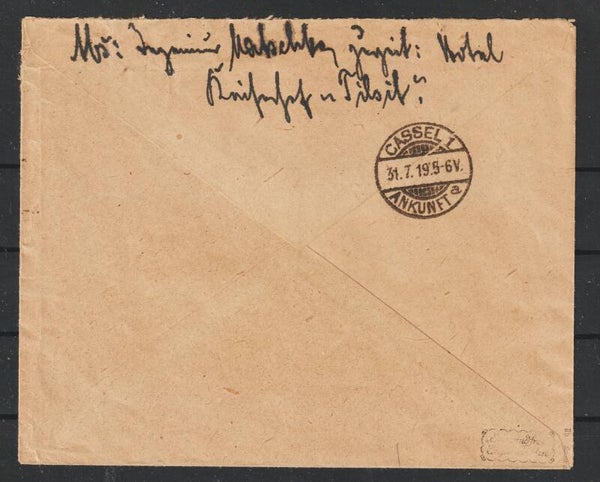 Abs: Ingenieur Matschke, zurzeit: Hotel
Kaiserhof in Tilsit.
CASSEL 1
31.7.19.5-6V.
ANKUNFT a